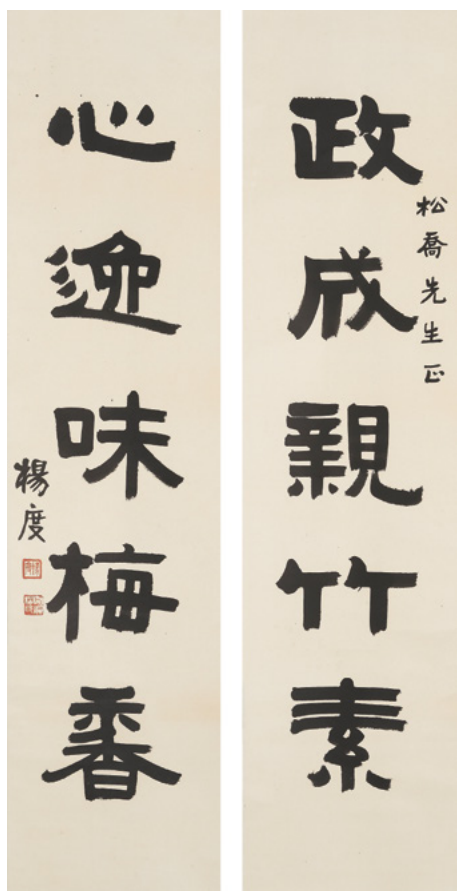 政成親竹素
松喬先生正
心味梅香
楊度